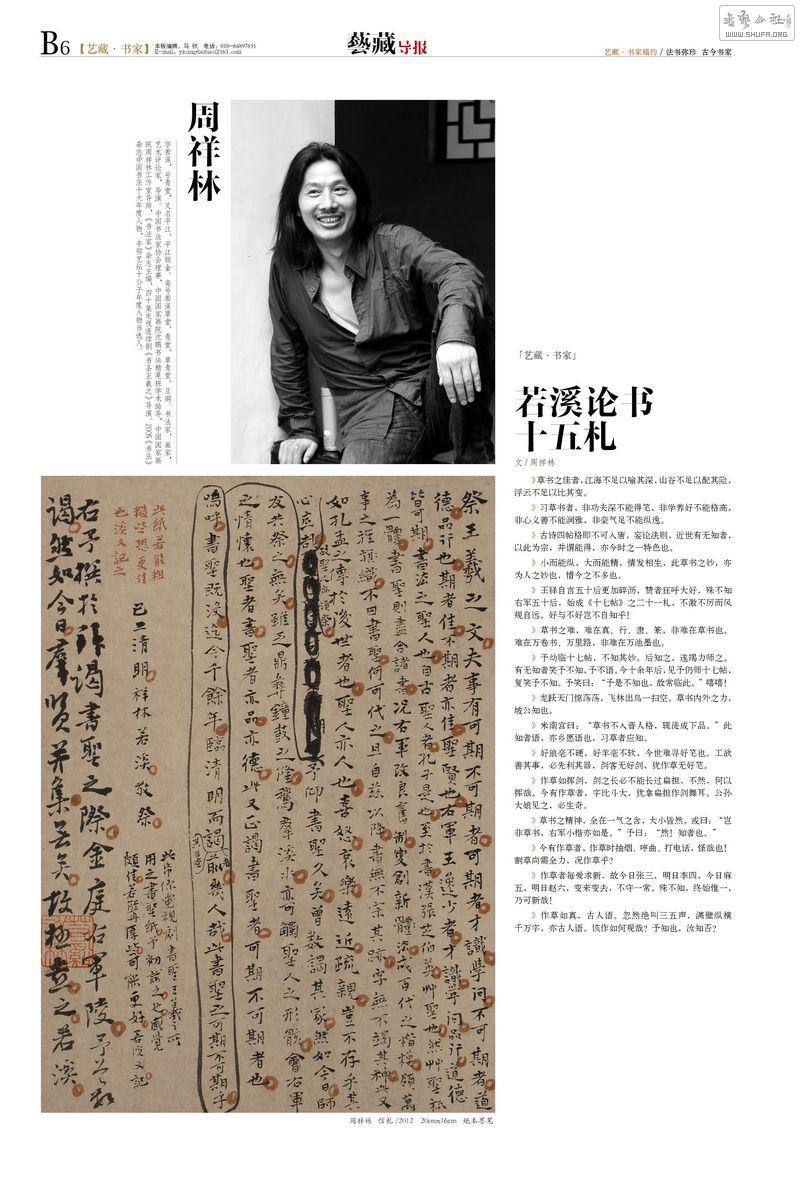 书艺公社
WWW.SHUFA.ORG
B6【艺藏·书家】
本版编辑：马 欣 电话：010-64897831
E-mail：yicangdaobao@163.com
藝藏导报
艺藏·书家稿约 / 法书弥珍 古今书家
周祥林
字若溪，号青堂，又名平江、平江顿金。斋号若溪草堂、青堂、草青堂、豆阁。书法家，画家，
艺术评论家，导演。中国书法家协会理事，中国国家画院沈鹏书法精英班学术助导，中国国家画
院周祥林工作室导师，《书法家》杂志主编，四十集电视连续剧《书圣王羲之》导演。2005《书法》
杂志中国书法十大年度人物，辛卯艺坛十公子年度人物当选人。
「艺藏·书家」
若溪论书
十五札
文/周祥林
》草书之佳者，江海不足以喻其深，山谷不足以配其险，
浮云不足以比其变。
》习草书者，非功夫深不能得笔、非学养好不能格高，
非心义善不能润雅，非豪气足不能纵逸。
》古诗四帖格即不可入唐，妄论法则，近世有无知者，
以此为宗，并谓能得，亦今时之一特色也。
》小而能纵，大而能精，情发相生，此草书之妙，亦
为人之妙也，惜今之不多也。
》王铎自言五十后更加碎沥，赞者狂呼大好，殊不知
右军五十后，始成《十七帖》之二十一札，不激不厉而风
规自远。好与不好岂不自知乎！
》草书之难，难在真、行、隶、篆，非难在草书也。
难在万卷书、万里路，非难在万池墨也。
》予幼临十七帖，不知其妙。后知之，遂竭力师之。
有无知者笑予不知，予不语。今十余年后，见予仍师十七帖，
复笑予不知。予笑曰：“予是不知也，故常临此。”嘻嘻！
》龙跃天门惊荡荡，飞林出鸟一扫空。草书内外之力，
坡公知也。
》米南宫曰：“草书不入晋人格，辄徒成下品。”此
知者语，亦乡愿语也，习草者应知。
》好狼毫不硬，好羊毫不软，今世难寻好笔也。工欲
善其事，必先利其器，剑客无好剑，犹作草无好笔。
》作草如挥剑，剑之长必不能长过扁担，不然，何以
挥哉。今有作草者，字比斗大，犹拿扁担作剑舞耳。公孙
大娘见之，必生奇。
》草书之精神，全在一气之含，大小皆然。或曰：“岂
非草书，右军小楷亦如是。”予曰：“然！知者也。”
》今有作草者，作草时抽烟、哼曲、打电话，怪哉也！
割草尚需全力，况作草乎？
》作草者每爱求新，故今日张三，明日李四，今日麻
五，明日赵六，变来变去，不守一常。殊不知，终始惟一，
乃可新哉！
》作草如真，古人语。忽然绝叫三五声，满壁纵横
千万字，亦古人语。该作如何观哉？予知也，汝知否？
祭王羲之文夫事有可期不可期者可期者才識學问不可期者道
德品行也期者佳不期者亦佳聖賢也右軍王逸少者才識學问品行道德
皆可期書法之聖人也自古聖人者孔子是也至於書漢張芝伯英艸聖也然艸聖祇
為一體書聖則盡含諸書况右軍改良舊制變創新體咨成百代之楷模領萬
事之旌旗織不曰書聖何可代之且自兹以降書無不宗其跡字無不竭其神此又
如孔孟之傳於後世者也聖人亦人也喜怒哀樂遠近疏親豈不存乎其
予仰書聖久矣曾数謁其冢然如今日師
友共祭之無矣雖乏鼎彝鐘鼓之隆鵞羣溪水亦可觸聖人之形骸會右軍
之情懷也聖者書聖者亦品亦德此又正謁書聖者可期不可期者也
嗚呼書聖既没迄今千餘年臨清明而謁者
幾人哉此書聖之可期不可期乎
己二清明祥林若溪敬祭
此紙若能粗
糙些恐更佳
也溪又記之
右予撰於拜謁書聖之際金庭右軍陵予
謁然如今日羣賢并集無矣故極言之若溪
此帋你電視劇書聖王羲之所
用之書聖紙予初試之也感覺
頗佳若能再厚些可能更好若溪又記
周祥林 信札/2012 20cmx16cm 纸本墨笔